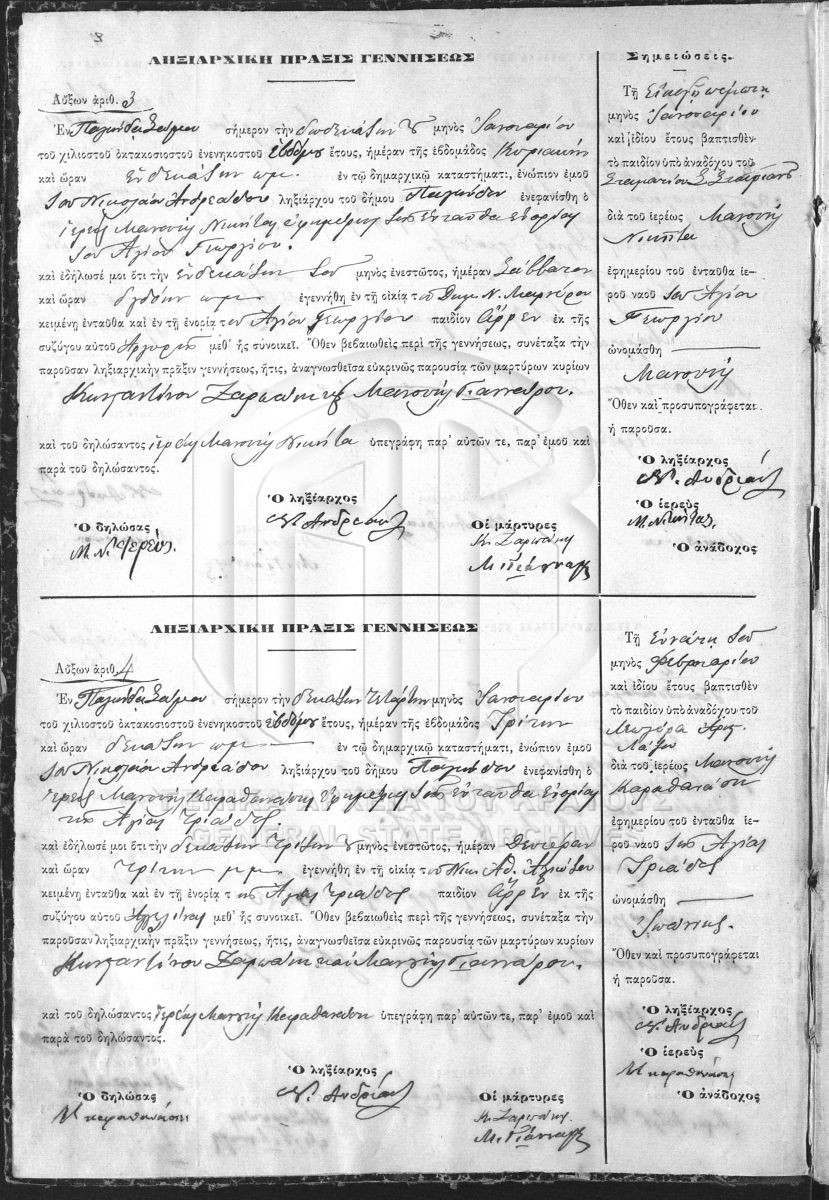 ΛΗΞΙΑΡΧΙΚΗ ΠΡΑΞΙΣ ΓΕΝΝΗΣΕΩΣ
Αὔξων ἀριθ. 3
Ἐν Παγώνδα Σάμου σήμερον τὴν δωδεκάτην μηνὸς Ἰανουαρίου
τοῦ χιλιοστοῦ ὀκτακοσιοστοῦ ἐνενηκοστοῦ ἑβδόμου ἔτους, ἡμέραν τῆς ἑβδομάδος Κυριακὴν
καὶ ὥραν ἑνδεκάτην πμ. ἐν τῷ δημαρχικῷ καταστήματι, ἐνώπιον ἐμοῦ
τοῦ Νικολάου Ἀνδρεάδου ληξιάρχου τοῦ δήμου Παγώνδου ἐνεφανίσθη ὁ
ἱερεὺς Μανουὴλ Νικήτας ἐφημέριος τῆς ἐνταῦθα ἐνορίας
τοῦ Ἁγίου Γεωργίου.
καὶ ἐδήλωσέ μοι ὅτι τὴν ἑνδεκάτην τοῦ μηνὸς ἐνεστῶτος, ἡμέραν Σάββατον
καὶ ὥραν ὀγδόην πμ. ἐγεννήθη ἐν τῇ οἰκίᾳ τοῦ Ν.
κειμένῃ ἐνταῦθα καὶ ἐν τῇ ἐνορίᾳ τοῦ Ἁγίου Γεωργίου παιδίον ἄρρεν ἐκ τῆς
συζύγου αὐτοῦ μεθ' ἧς συνοικεῖ. Ὅθεν βεβαιωθεὶς περὶ τῆς γεννήσεως, συνέταξα τὴν
παροῦσαν ληξιαρχικὴν πρᾶξιν γεννήσεως, ἥτις, ἀναγνωσθεῖσα εὐκρινῶς παρουσίᾳ τῶν μαρτύρων κυρίων
Κωνσταντίνου Ζαρπάνη καὶ Μανουὴλ Γιανναρου.
καὶ τοῦ δηλώσαντος ἱερέως Μανουὴλ Νικήτα ὑπεγράφη παρ' αὐτῶν τε, παρ' ἐμοῦ καὶ
παρὰ τοῦ δηλώσαντος.
Ὁ δηλώσας
Μ. Ν. Ἱερεύς.
Ὁ ληξίαρχος
Ν. Ἀνδρεάδης
Οἱ μάρτυρες
Κ. Ζαρπάνης
Σημειώσεις.
Τῇ εἰκοστῇ πέμπτῃ
μηνὸς Ἰανουαρίου
καὶ ἰδίου ἔτους βαπτισθὲν
τὸ παιδίον ὑπὸ ἀναδόχου τοῦ
Σταματίου
διὰ τοῦ ἱερέως Μανουὴλ
Νικήτα
ἐφημερίου τοῦ ἐνταῦθα ἱε-
ροῦ ναοῦ τοῦ Ἁγίου
Γεωργίου
ὠνομάσθη
Μανουὴλ
Ὅθεν καὶ προσυπογράφεται
ἡ παροῦσα.
Ὁ ληξίαρχος
Ν. Ἀνδρεάδης
Ὁ ἱερεὺς
Μ. Νικήτας
Ὁ ἀνάδοχος
ΛΗΞΙΑΡΧΙΚΗ ΠΡΑΞΙΣ ΓΕΝΝΗΣΕΩΣ
Αὔξων ἀριθ. 4
Ἐν Παγώνδα Σάμου σήμερον τὴν δεκάτην τετάρτην μηνὸς Ἰανουαρίου
τοῦ χιλιοστοῦ ὀκτακοσιοστοῦ ἐνενηκοστοῦ ἑβδόμου ἔτους, ἡμέραν τῆς ἑβδομάδος Τρίτην
καὶ ὥραν δεκάτην πμ. ἐν τῷ δημαρχικῷ καταστήματι, ἐνώπιον ἐμοῦ
τοῦ Νικολάου Ἀνδρεάδου ληξιάρχου τοῦ δήμου Παγώνδου ἐνεφανίσθη ὁ
ἱερεὺς Μανουὴλ Καραθανάσης ἐφημέριος τῆς ἐνταῦθα ἐνορίας
τῆς Ἁγίας Τριάδος.
ΓΕΝΙΚΑ ΑΡΧΕΙΑ ΤΟΥ ΚΡΑΤΟΥΣ
GENERAL STATE ARCHIVES
καὶ ἐδήλωσέ μοι ὅτι τὴν δεκάτην τρίτην τοῦ μηνὸς ἐνεστῶτος, ἡμέραν Δευτέραν
καὶ ὥραν τρίτην μμ. ἐγεννήθη ἐν τῇ οἰκίᾳ τοῦ Νικ. Ἀθ.
κειμένῃ ἐνταῦθα καὶ ἐν τῇ ἐνορίᾳ τῆς Ἁγίας Τριάδος παιδίον ἄρρεν ἐκ τῆς
συζύγου αὐτοῦ μεθ' ἧς συνοικεῖ. Ὅθεν βεβαιωθεὶς περὶ τῆς γεννήσεως, συνέταξα τὴν
παροῦσαν ληξιαρχικὴν πρᾶξιν γεννήσεως, ἥτις, ἀναγνωσθεῖσα εὐκρινῶς παρουσίᾳ τῶν μαρτύρων κυρίων
Κωνσταντίνου Ζαρπάνη καὶ Μανουὴλ Γιανναρου.
καὶ τοῦ δηλώσαντος ἱερέως Μανουὴλ Καραθανάση ὑπεγράφη παρ' αὐτῶν τε, παρ' ἐμοῦ καὶ
παρὰ τοῦ δηλώσαντος.
Ὁ δηλώσας
Μ καραθανάσης
Ὁ ληξίαρχος
Ν. Ἀνδρεάδης
Οἱ μάρτυρες
Κ. Ζαρπάνης
Τῇ ἐνάτῃ τοῦ
μηνὸς Φεβρουαρίου
καὶ ἰδίου ἔτους βαπτισθὲν
τὸ παιδίον ὑπὸ ἀναδόχου τοῦ
διὰ τοῦ ἱερέως Μανουὴλ
Καραθανάση
ἐφημερίου τοῦ ἐνταῦθα ἱε-
ροῦ ναοῦ τῆς Ἁγίας
Τριάδος
ὠνομάσθη
Ἰωάννης.
Ὅθεν καὶ προσυπογράφεται
ἡ παροῦσα.
Ὁ ληξίαρχος
Ν. Ἀνδρεάδης
Ὁ ἱερεὺς
Μ καραθανάσης
Ὁ ἀνάδοχος